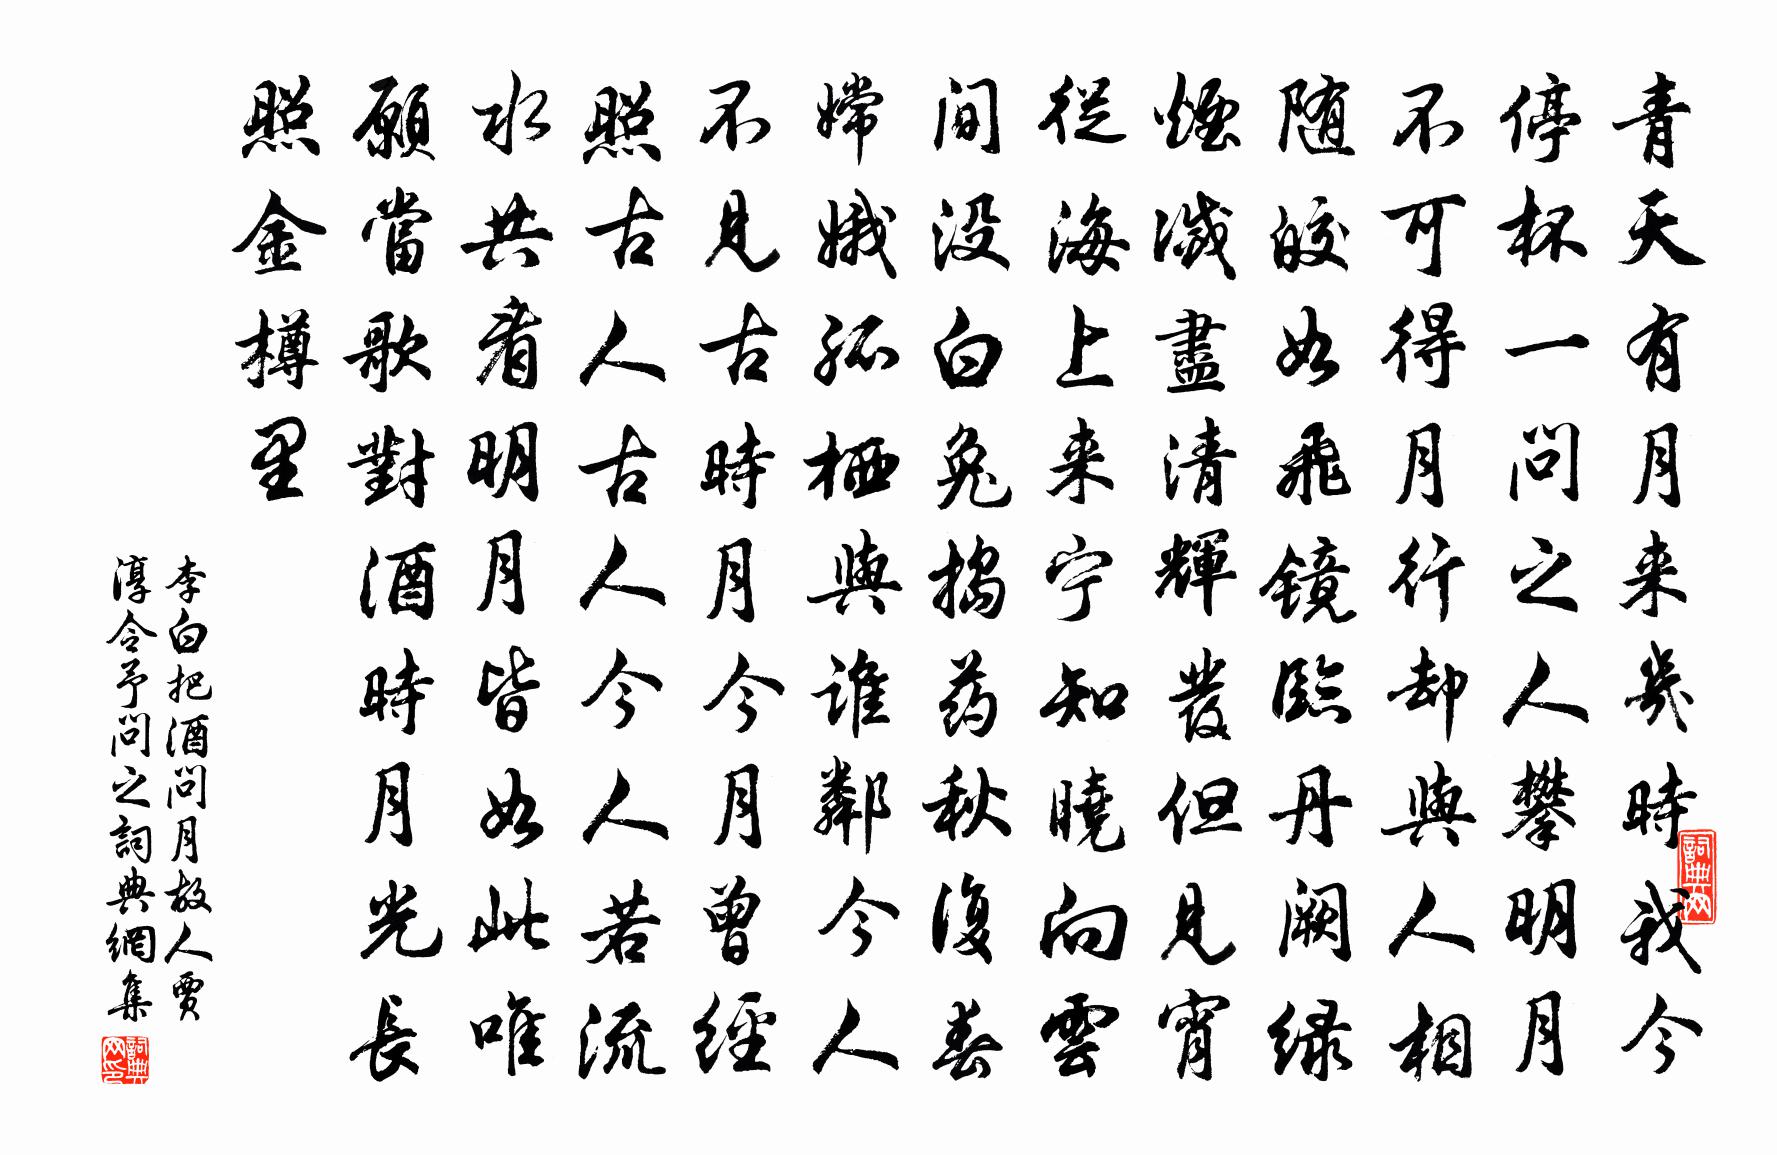 青天有月来幾時我今
停杯一問之人攀明月
不可得月行却與人相
随皎如飛镜臨丹阙緑
煙滅盡清輝發但見宵
從海上来宁知曉向雲
间没白兔搗药秋復春
嫦娥孤栖與誰鄰今人
不見古時月今月曾經
照古人古人今人若流
水共看明月皆如此唯
願當歌對酒時月光長
照金樽里
李白把酒問月故人賈
淳令予問之詞典網集
詞典网
詞典